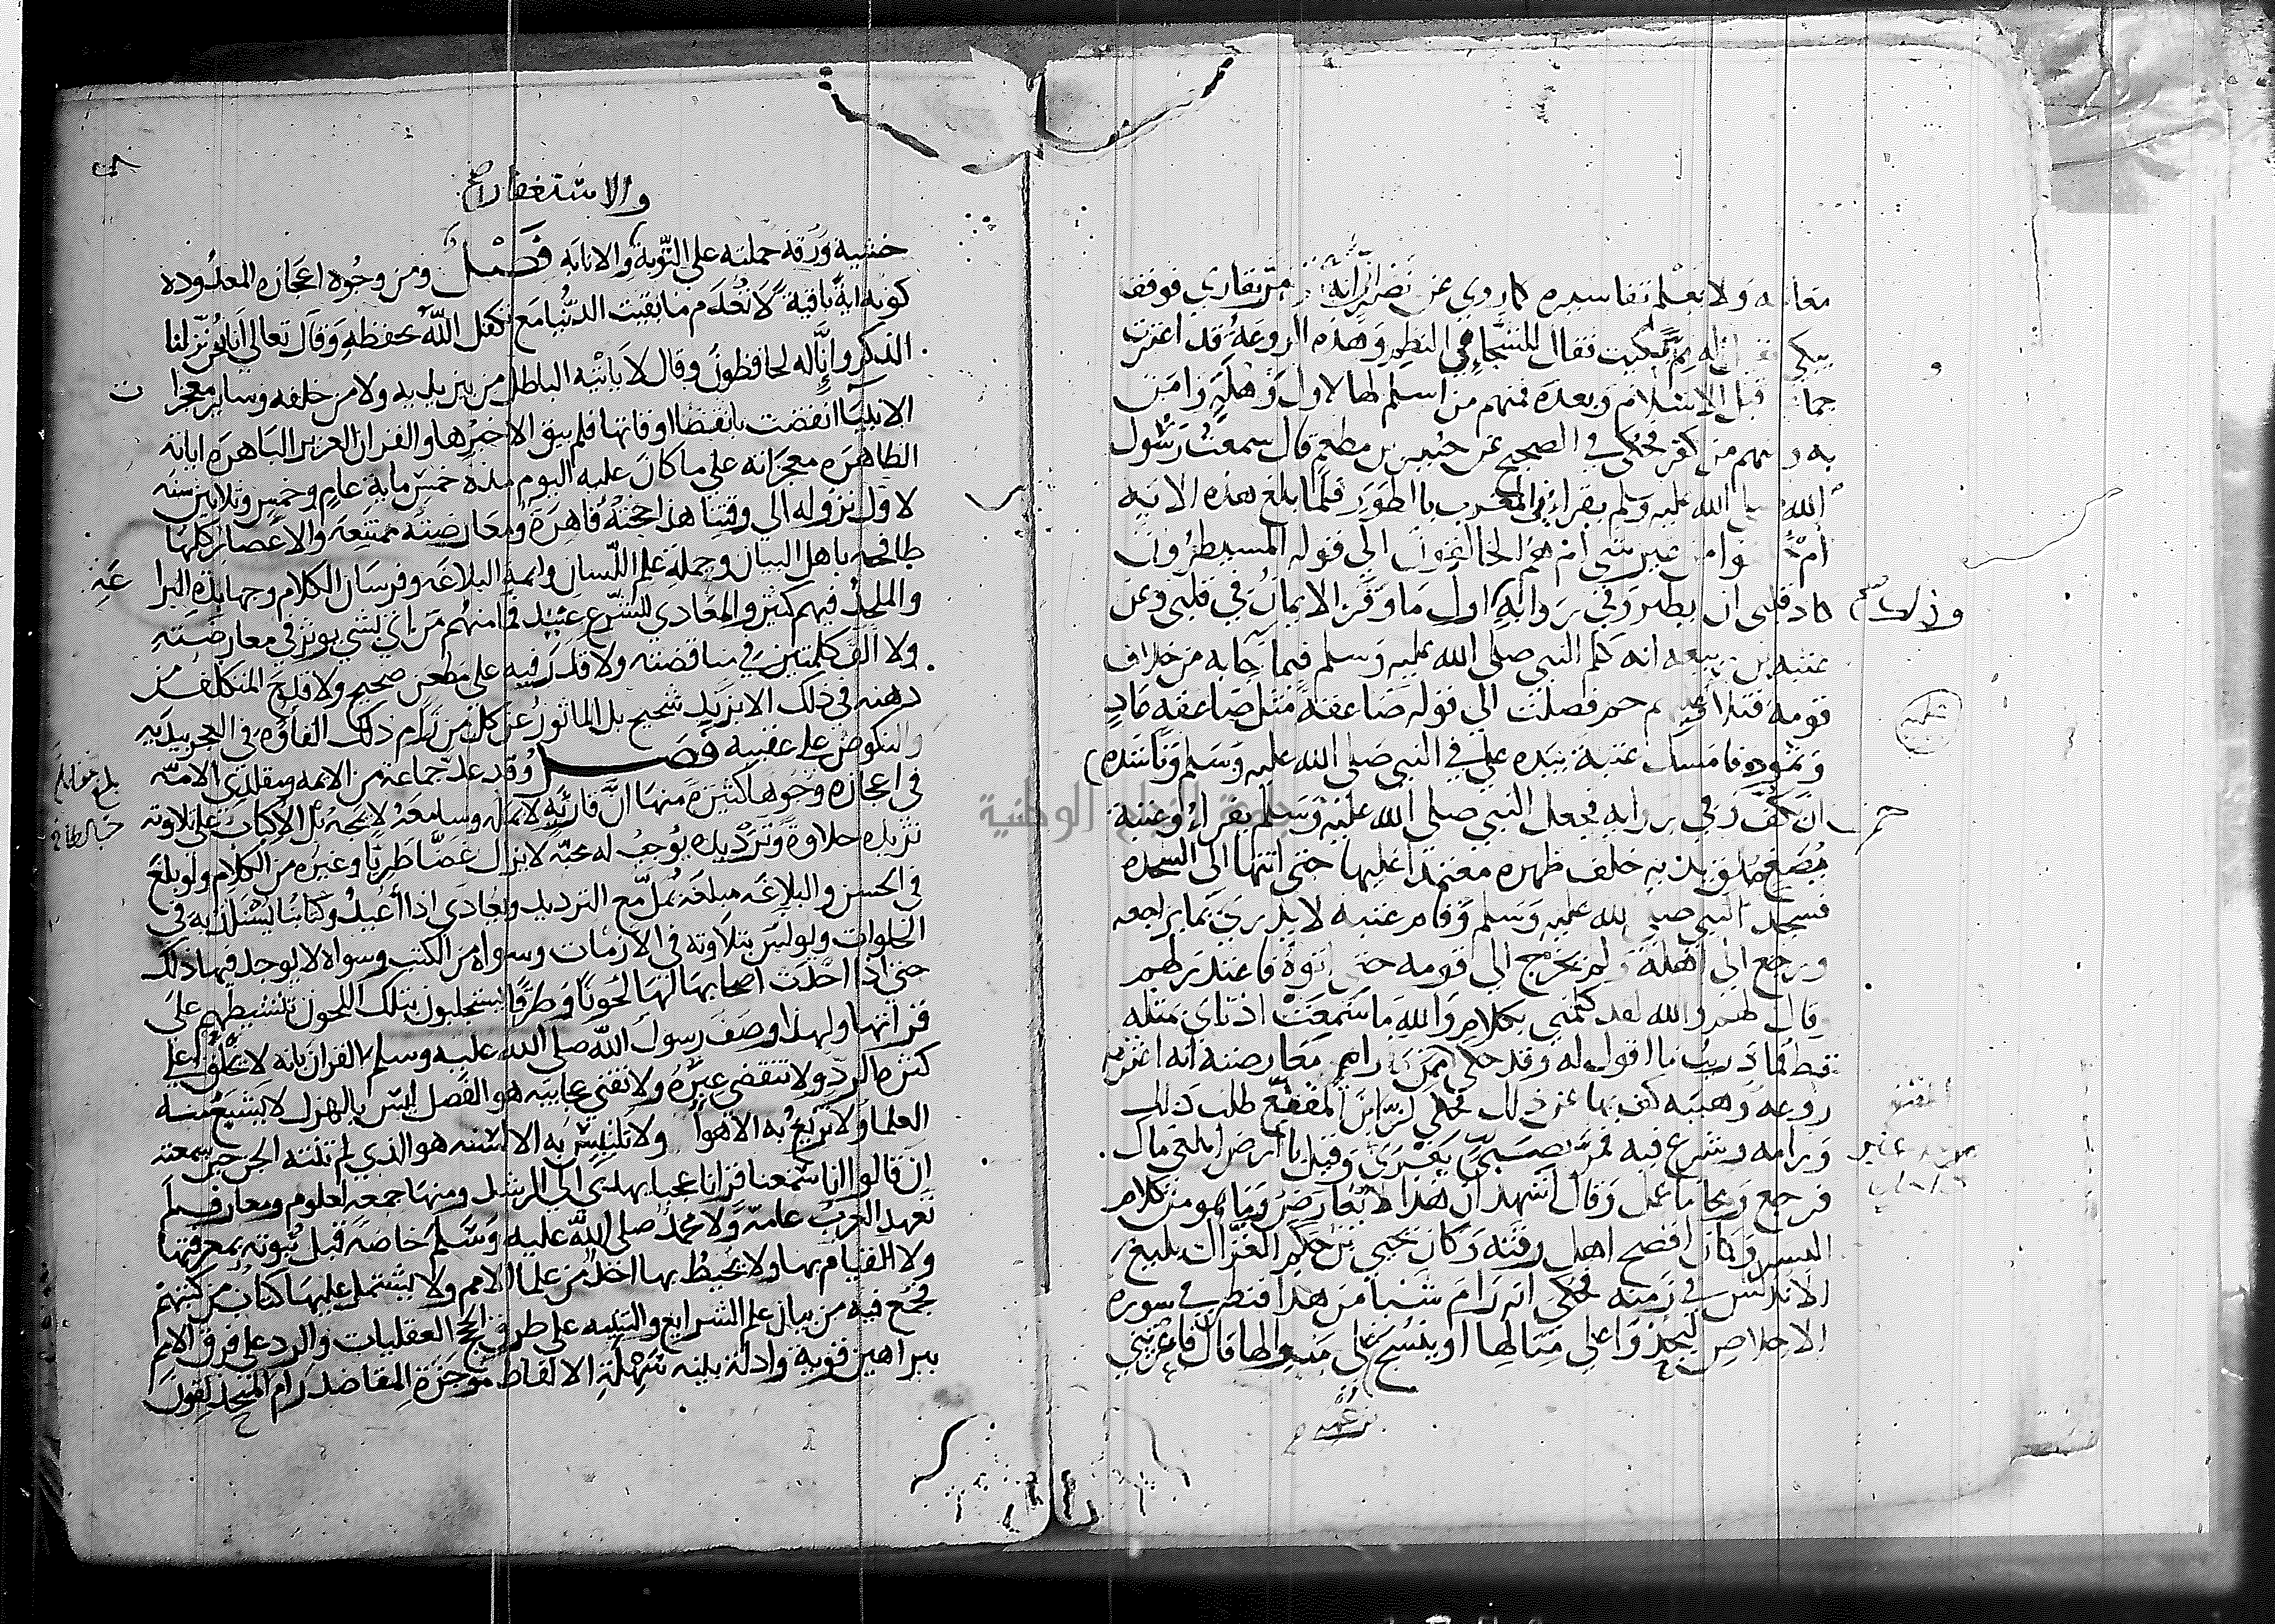 معانيه ولا يعلم تفاسيره كما روي عن نصراني انه مر بقاري فوقف
يبكي فقيل له مم بكيت فقال للشجا في النظم وهذه الروعة قد اعترت
جما قبل الاسلام وبعده فمنهم من اسلم لها لاول وهلة وامن
به ومنهم من كفر فحكي في الصحيح عن جبير بن مطعم قال سمعت رسول
الله صلى الله عليه وسلم يقراء في المغرب با لطور فلما بلغ هذه الاية
ام خلقوا من غير شي ام هم الخالقون الى قوله المسيطرون
كاد قلبي ان يطير وفي رواية اول ما وقر الايمان في قلبي وعن
وذلك
عتبة بن ربيعه انه كلم النبي صلى الله عليه وسلم فيما جا به من خلاف
قومه فتلا عليهم حم فصلت الى قوله صاعقة مثل صاعقة عاد
وثمود فامسك عتبة بيده على في النبي صلى الله عليه وسلم وناشده
ان يكف وفي رواية فجعل النبي صلى الله عليه وسلم يقراء وعتبة
مصغ ملق يديه خلف ظهره معتمدا عليها حتى انتها الى السجدة
فسجد النبي صلى الله عليه وسلم وقام عتبه لا يدري بما يراجعه
ورجع الى اهله ولم يخرج الى قومه حتى اتوه فاعتذر لهم
وقال لهم والله لقد كلمني بكلام والله ما سمعت اذناي مثله
قط فما دريت ما اقول له وقد حكى عن من رام معارضته انه اعترته
روعه وهيبه كف بها عن ذلك فحكي ان ابن المقفع طلب ذلك
ورامه وشرع فيه فمر بصبي يقرى وقيل يا ارض ابلعي ماك
فرجع ومحا ما عمل وقال اشهد ان هذا لا يعارض وما هو من كلام
البشر وكان افصح اهل وقته وكان يحيى بن حكم الغزال بليغ
الاندلس في زمنه فحكي انه رام شيا من هذا فنظر في سورة
الاخلاص ليحذو اعلى مثالها او ينسج على منوالها قال فاعترتني
والاستغفار صح
خشية ورقة حملته على التوبة والانابه فصل ومن وجوه اعجازه المعدوده
كونه اية باقية لا تعدم ما بقيت الدنيا مع تكفل الله بحفظه وقال تعالى انا نحن نزلنا
الذكر وانا له لحافظون وقال لا ياتيه الباطل من بين يديه ولا من خلفه وساير معجزات
الانبيا انقضت بانقضا اوقاتها فلم يبق الا خبرها والقران العزيز الباهره اياته
الظاهره معجزاته على ما كان عليه اليوم مذة خمس ماية عام وخمس وثلاثين سنه
لاول نزوله الى وقتنا هذا حجته قاهرة ومعارضته ممتنعة والاعصار كلها
طافحه باهل البيان وحملة علم اللسان وايمة البلاغه وفرسان الكلام وجهابذة البراعة
والملحد فيهم كثير والمعادي للشرع عتيد فما منهم من اتى بشي يوثر في معارضته
ولا الف كلمتين في مناقضته ولا قدر فيه على مطعن صحيح ولا قدح المتكلف من
ذهنه في ذلك الا بزند شحيح بل الماثور عن كل من رام ذلك القاوه في العجز بيديه
والنكوص على عقبيه فصل وقد عد جماعة من الايمه ومقلدي الامه
في اعجازه وجوها كثيرة منها ان قاريه لا يمله وسامعه لا يمجه بل الاكباب على تلاوته
تزيده حلاوة وترديده يوجب له محبه لا يزال غضا طريا وغيره من الكلام ولو بلغ
في الحسن والبلاغه مبلغه يمل مع الترديد ويعادى اذا اعيد وكتابنا يستلذ به في
الخلوات ويونس بتلاوته في الازمات وسواه من الكتب لا يوجد فيها ذلك
حتى اذا احدث اصحابها لها لحونا وطرقا يستجلبون بتلك اللحون تنشيطهم على
قراتها ولهذا وصف رسول الله صلى الله عليه وسلم القران بانه لا يخلق على
كثرة الرد ولا تنقضي عبره ولا تفنى عجايبه هو الفصل ليس بالهزل لا يشبع منه
العلما ولا تزيغ به الاهوا ولا تلتبس به الالسنه هو الذي لم تنته الجن حين سمعته
ان قالوا انا سمعنا قرانا عجبا يهدي الى الرشد ومنها جمعه لعلوم ومعارف لم
تعهد العرب عامة ولا محمد صلى الله عليه وسلم خاصة قبل نبوته بمعرفتها
ولا القيام بها ولا يحيط بها احد من علما الامم ولا يشتمل عليها كتاب من كتبهم
فجمع فيه من بيان علم الشرايع والتنبيه على طرق الحجج العقليات والرد على فرق الامم
ببراهين قوية وادلة بينه سهلة الالفاظ موجزة المقاصد رام المتحذلقون
جامعة النجاح الوطنية